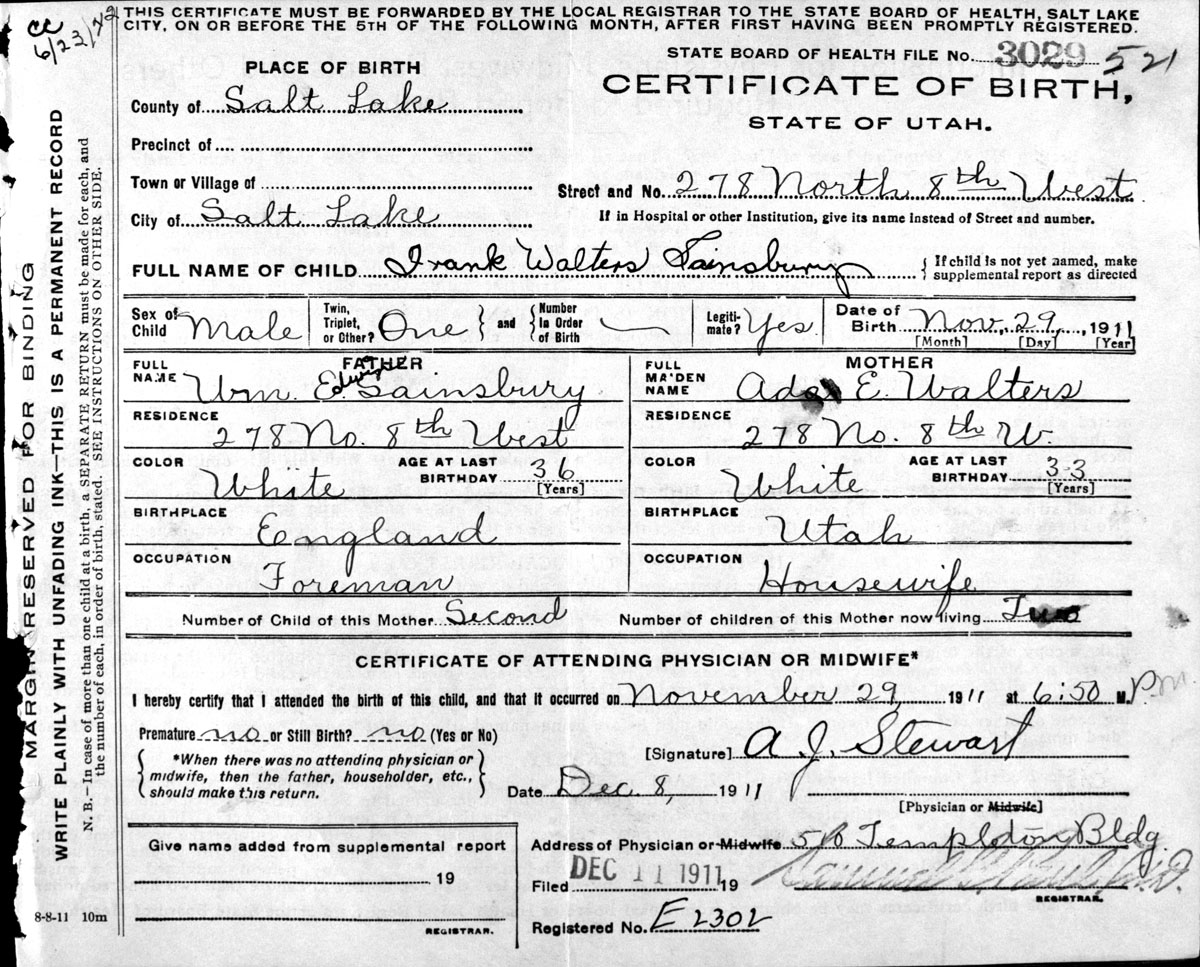 cc
6/23/42
THIS CERTIFICATE MUST BE FORWARDED BY THE LOCAL REGISTRAR TO THE STATE BOARD OF HEALTH, SALT LAKE
CITY, ON OR BEFORE THE 5TH OF THE FOLLOWING MONTH, AFTER FIRST HAVING BEEN PROMPTLY REGISTERED.
STATE BOARD OF HEALTH FILE No. 3029 521
PLACE OF BIRTH
CERTIFICATE OF BIRTH,
STATE OF UTAH.
County of Salt Lake
Precinct of
Town or Village of
Street and No. 278 North 8th West
City of Salt Lake
If in Hospital or other Institution, give its name instead of Street and number.
FULL NAME OF CHILD Frank Walters Sainsbury { If child is not yet named, make
supplemental report as directed
Sex of Child Male
Twin, Triplet, or Other? One } and { Number In Order of Birth —
Legiti-mate? Yes
Date of Birth Nov. 29, 1911
[Month] [Day] [Year]
FATHER
FULL NAME Wm. Edwin Sainsbury
RESIDENCE 278 No. 8th West
COLOR White AGE AT LAST BIRTHDAY 36 [Years]
BIRTHPLACE England
OCCUPATION Foreman
MOTHER
FULL MAIDEN NAME Ada E. Walters
RESIDENCE 278 No. 8th W.
COLOR White AGE AT LAST BIRTHDAY 33 [Years]
BIRTHPLACE Utah
OCCUPATION Housewife
Number of Child of this Mother Second Number of children of this Mother now living Two
CERTIFICATE OF ATTENDING PHYSICIAN OR MIDWIFE*
I hereby certify that I attended the birth of this child, and that it occurred on November 29 1911 at 6:50 M. Pm.
Premature no or Still Birth? no (Yes or No)
*When there was no attending physician or
midwife, then the father, householder, etc.,
should make this return.
[Signature] A. J. Stewart
Date Dec. 8, 1911
[Physician or Midwife]
Give name added from supplemental report
19
REGISTRAR.
Address of Physician or Midwife Templeton Bldg.
Filed DEC 11 1911 19
REGISTRAR.
Registered No. E 2302
8-8-11 10m
MARGIN RESERVED FOR BINDING
WRITE PLAINLY WITH UNFADING INK—THIS IS A PERMANENT RECORD
N. B.—In case of more than one child at a birth, a SEPARATE RETURN must be made for each, and
the number of each, in order of birth stated. SEE INSTRUCTIONS ON OTHER SIDE.